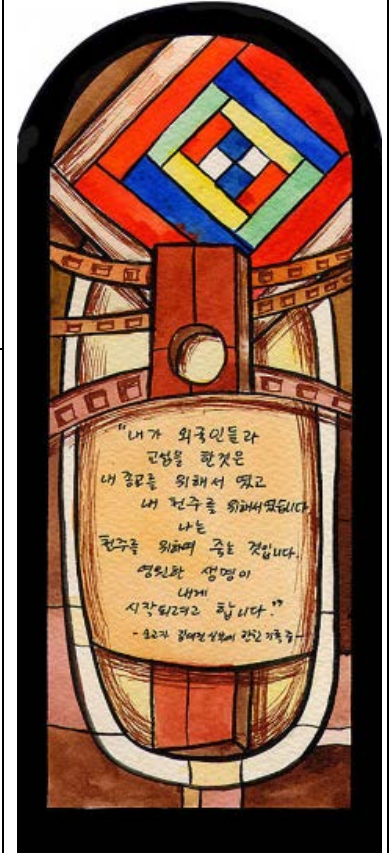 "내가 외국인들과
교섭을 한것은
내 종교를 위해서 였고
내 천주를 위해서였습니다.
나는
천주를 위하여 죽는 것입니다.
영원한 생명이
내게
시작되려고 합니다."
- 순교자 김대건 신부에 관한 기록 중 -